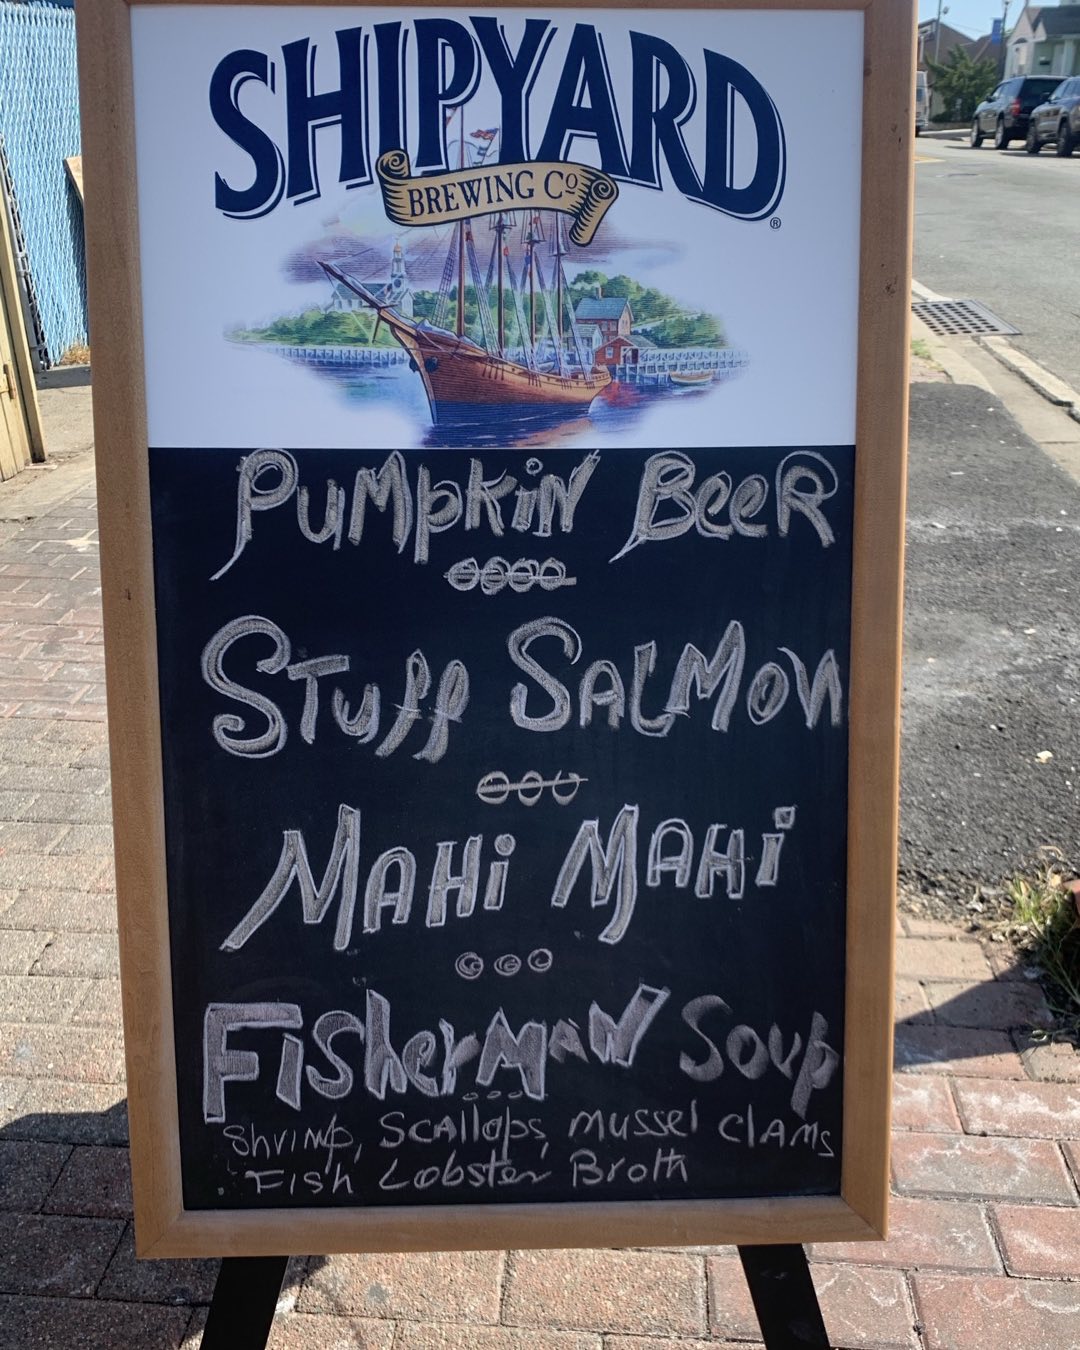 SHIPYARD
BREWING Co
®
PUMpkiN BeeR
STuff SALMON
MAHi MAHi
FisherMAN Soup
Shrimp, Scallops, mussel clAMs
Fish Lobster Broth